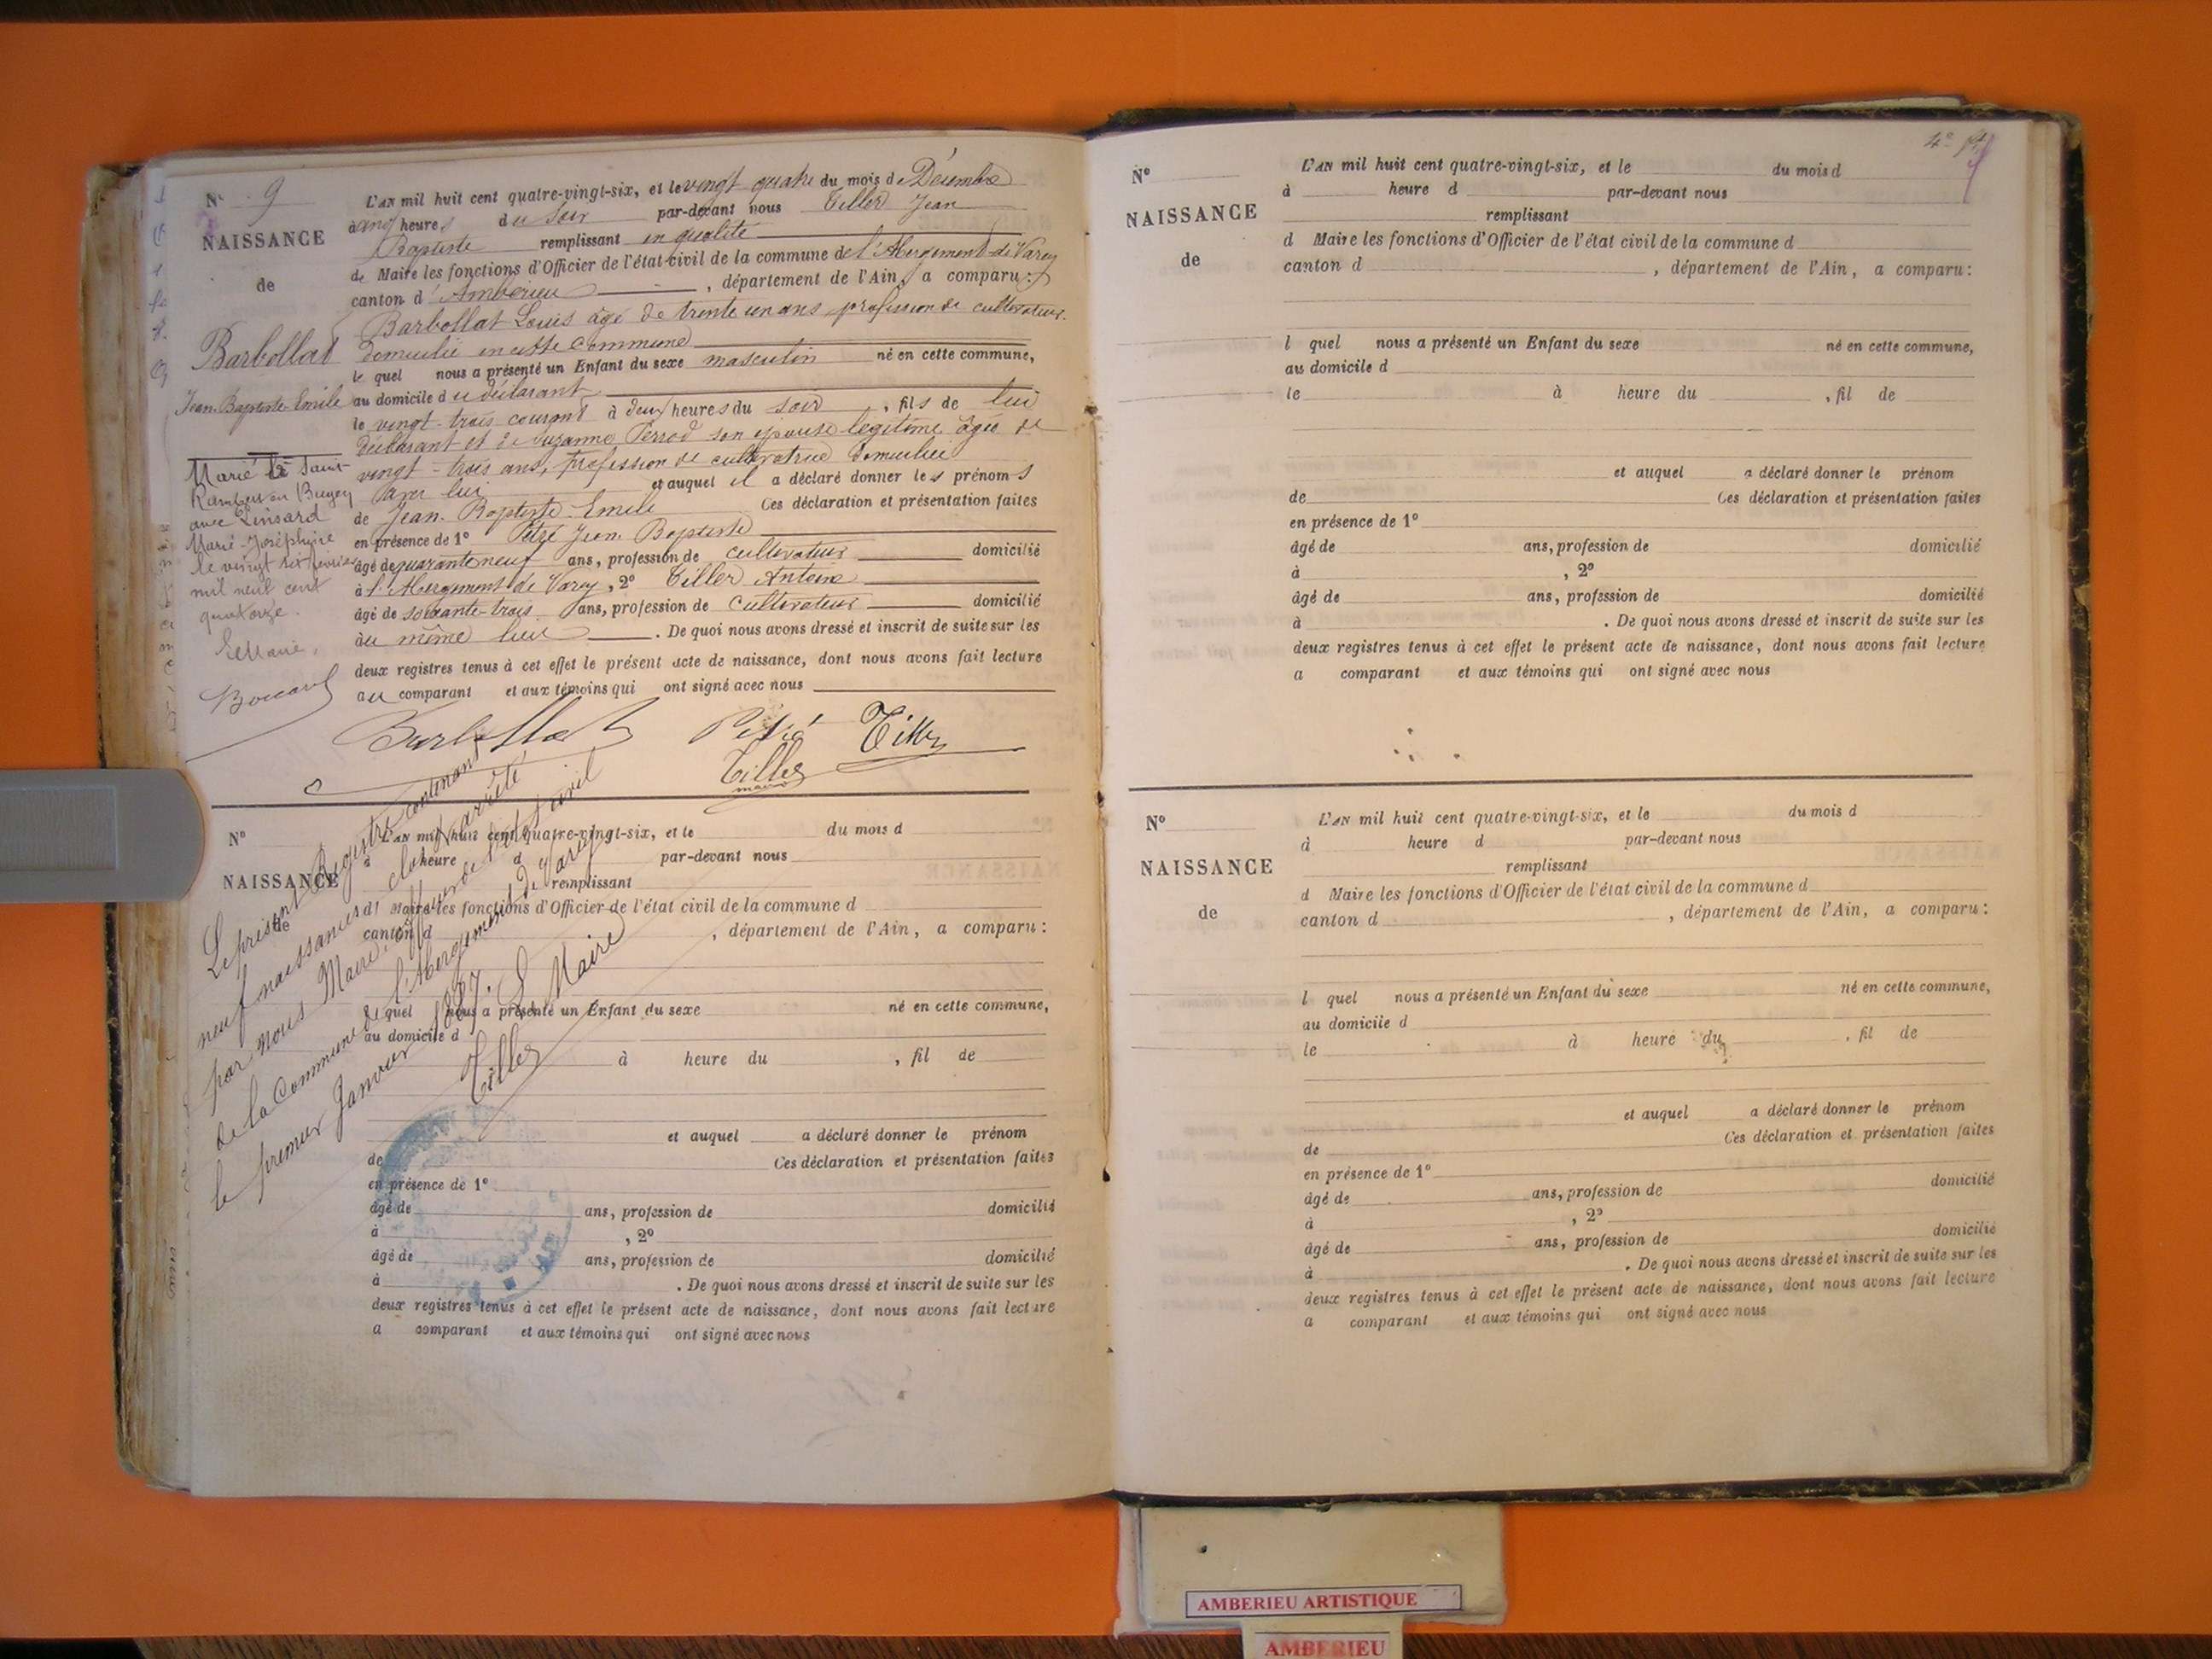 N° 9
NAISSANCE
de
Barbollat
Jean-Baptiste-Emile
Marié à Saint-
Rambert en Bugey
avec Linsard
Marie-Joséphine
le vingt six février
mil neuf cent
quatorze.
Le Maire,
L'AN mil huit cent quatre-vingt-six, et le vingt quatre du mois de Décembre
à cinq heures du soir par-devant nous Tiller Jean
Baptiste remplissant en qualité
de Maire les fonctions d'Officier de l'état civil de la commune de l'Abergement-de-Varey
canton d'Ambérieu , département de l'Ain, a comparu:
Barbollat Louis âgé de trente un ans profession de cultivateur
domicilié en cette commune
le quel nous a présenté un Enfant du sexe masculin né en cette commune,
au domicile du déclarant
le vingt-trois courant à deux heures du soir , fils de lui
déclarant et de Suzanne Perrod son épouse légitime âgée de
vingt-trois ans, profession de cultivatrice domiciliée
avec lui et auquel il a déclaré donner les prénoms
de Jean-Baptiste-Emile Ces déclaration et présentation faites
en présence de 1° Jean Baptiste
âgé de quarante neuf ans, profession de cultivateur domicilié
à l'Abergement de Varey, 2° Tiller Antoine
âgé de soixante-trois ans, profession de cultivateur domicilié
au même lieu . De quoi nous avons dressé et inscrit de suite sur les
deux registres tenus à cet effet le présent acte de naissance, dont nous avons fait lecture
au comparant et aux témoins qui ont signé avec nous
Barbollat Tiller
Tiller
maire
N°
NAISSANCE
de
L'AN mil huit cent quatre-vingt-six, et le du mois d
à heure d par-devant nous
remplissant
d Maire les fonctions d'Officier de l'état civil de la commune d
canton d , département de l'Ain, a comparu:
l quel nous a présenté un Enfant du sexe né en cette commune,
au domicile d
à heure du , fil de
et auquel a déclaré donner le prénom
de Ces déclaration et présentation faites
en présence de 1°
âgé de ans, profession de domicilié
à , 2°
âgé de ans, profession de domicilié
à . De quoi nous avons dressé et inscrit de suite sur les
deux registres tenus à cet effet le présent acte de naissance, dont nous avons fait lecture
a comparant et aux témoins qui ont signé avec nous
Le présent Registre contenant
neuf naissances clos et arrêté
par nous Maire officier de l'état civil
de la Commune de l'Abergement de Varey
le premier Janvier 1887.
Le Maire
Tiller
N°
NAISSANCE
de
L'AN mil huit cent quatre-vingt-six, et le du mois d
à heure d par-devant nous
remplissant
d Maire les fonctions d'Officier de l'état civil de la commune d
canton d , département de l'Ain, a comparu:
l quel nous a présenté un Enfant du sexe né en cette commune,
au domicile d
le à heure du , fil de
et auquel a déclaré donner le prénom
de Ces déclaration et présentation faites
en présence de 1°
âgé de ans, profession de domicilié
à , 2°
âgé de ans, profession de domicilié
à . De quoi nous avons dressé et inscrit de suite sur les
deux registres tenus à cet effet le présent acte de naissance, dont nous avons fait lecture
a comparant et aux témoins qui ont signé avec nous
N°
NAISSANCE
de
L'AN mil huit cent quatre-vingt-six, et le du mois d
à heure d par-devant nous
remplissant
d Maire les fonctions d'Officier de l'état civil de la commune d
canton d , département de l'Ain, a comparu:
l quel nous a présenté un Enfant du sexe né en cette commune,
au domicile d
le à heure du , fil de
et auquel a déclaré donner le prénom
de Ces déclaration et présentation faites
en présence de 1°
âgé de ans, profession de domicilié
à , 2°
âgé de ans, profession de domicilié
à . De quoi nous avons dressé et inscrit de suite sur les
deux registres tenus à cet effet le présent acte de naissance, dont nous avons fait lecture
a comparant et aux témoins qui ont signé avec nous
AMBERIEU ARTISTIQUE
AMBERIEU